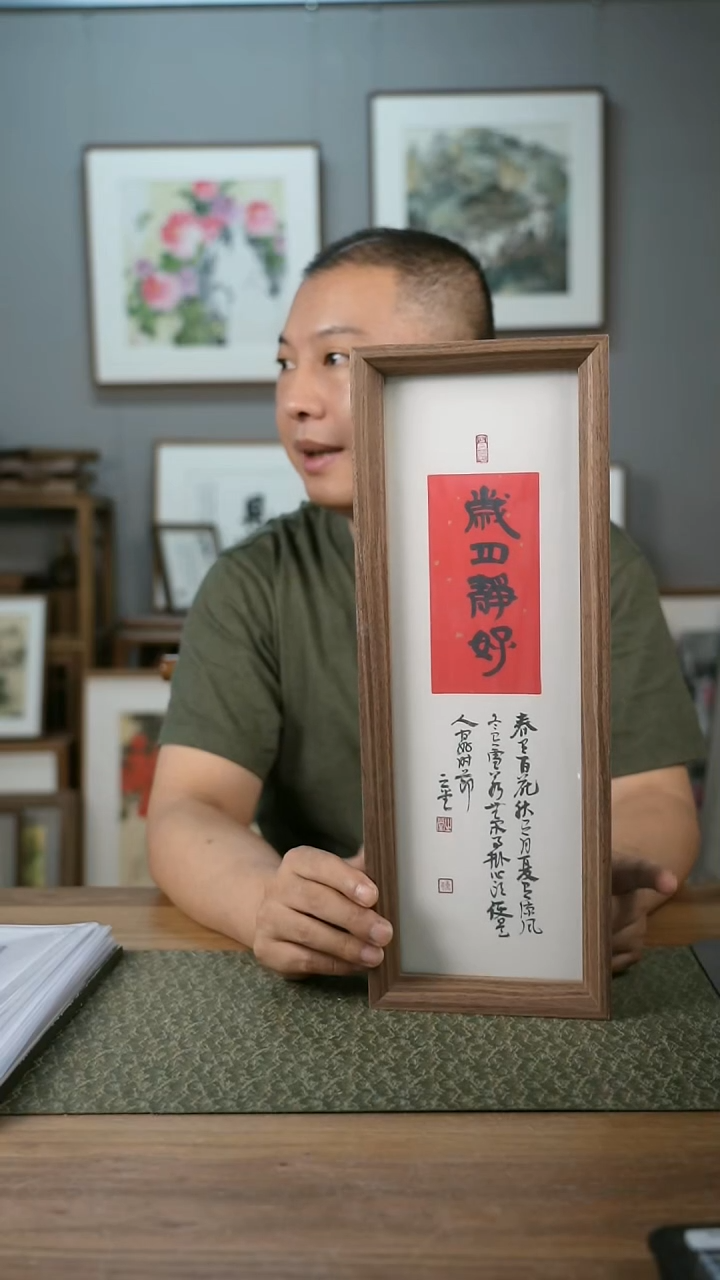 歲月靜好
春有百花秋有月夏有凉风
冬有雪若无闲事挂心头便是
人间好时节